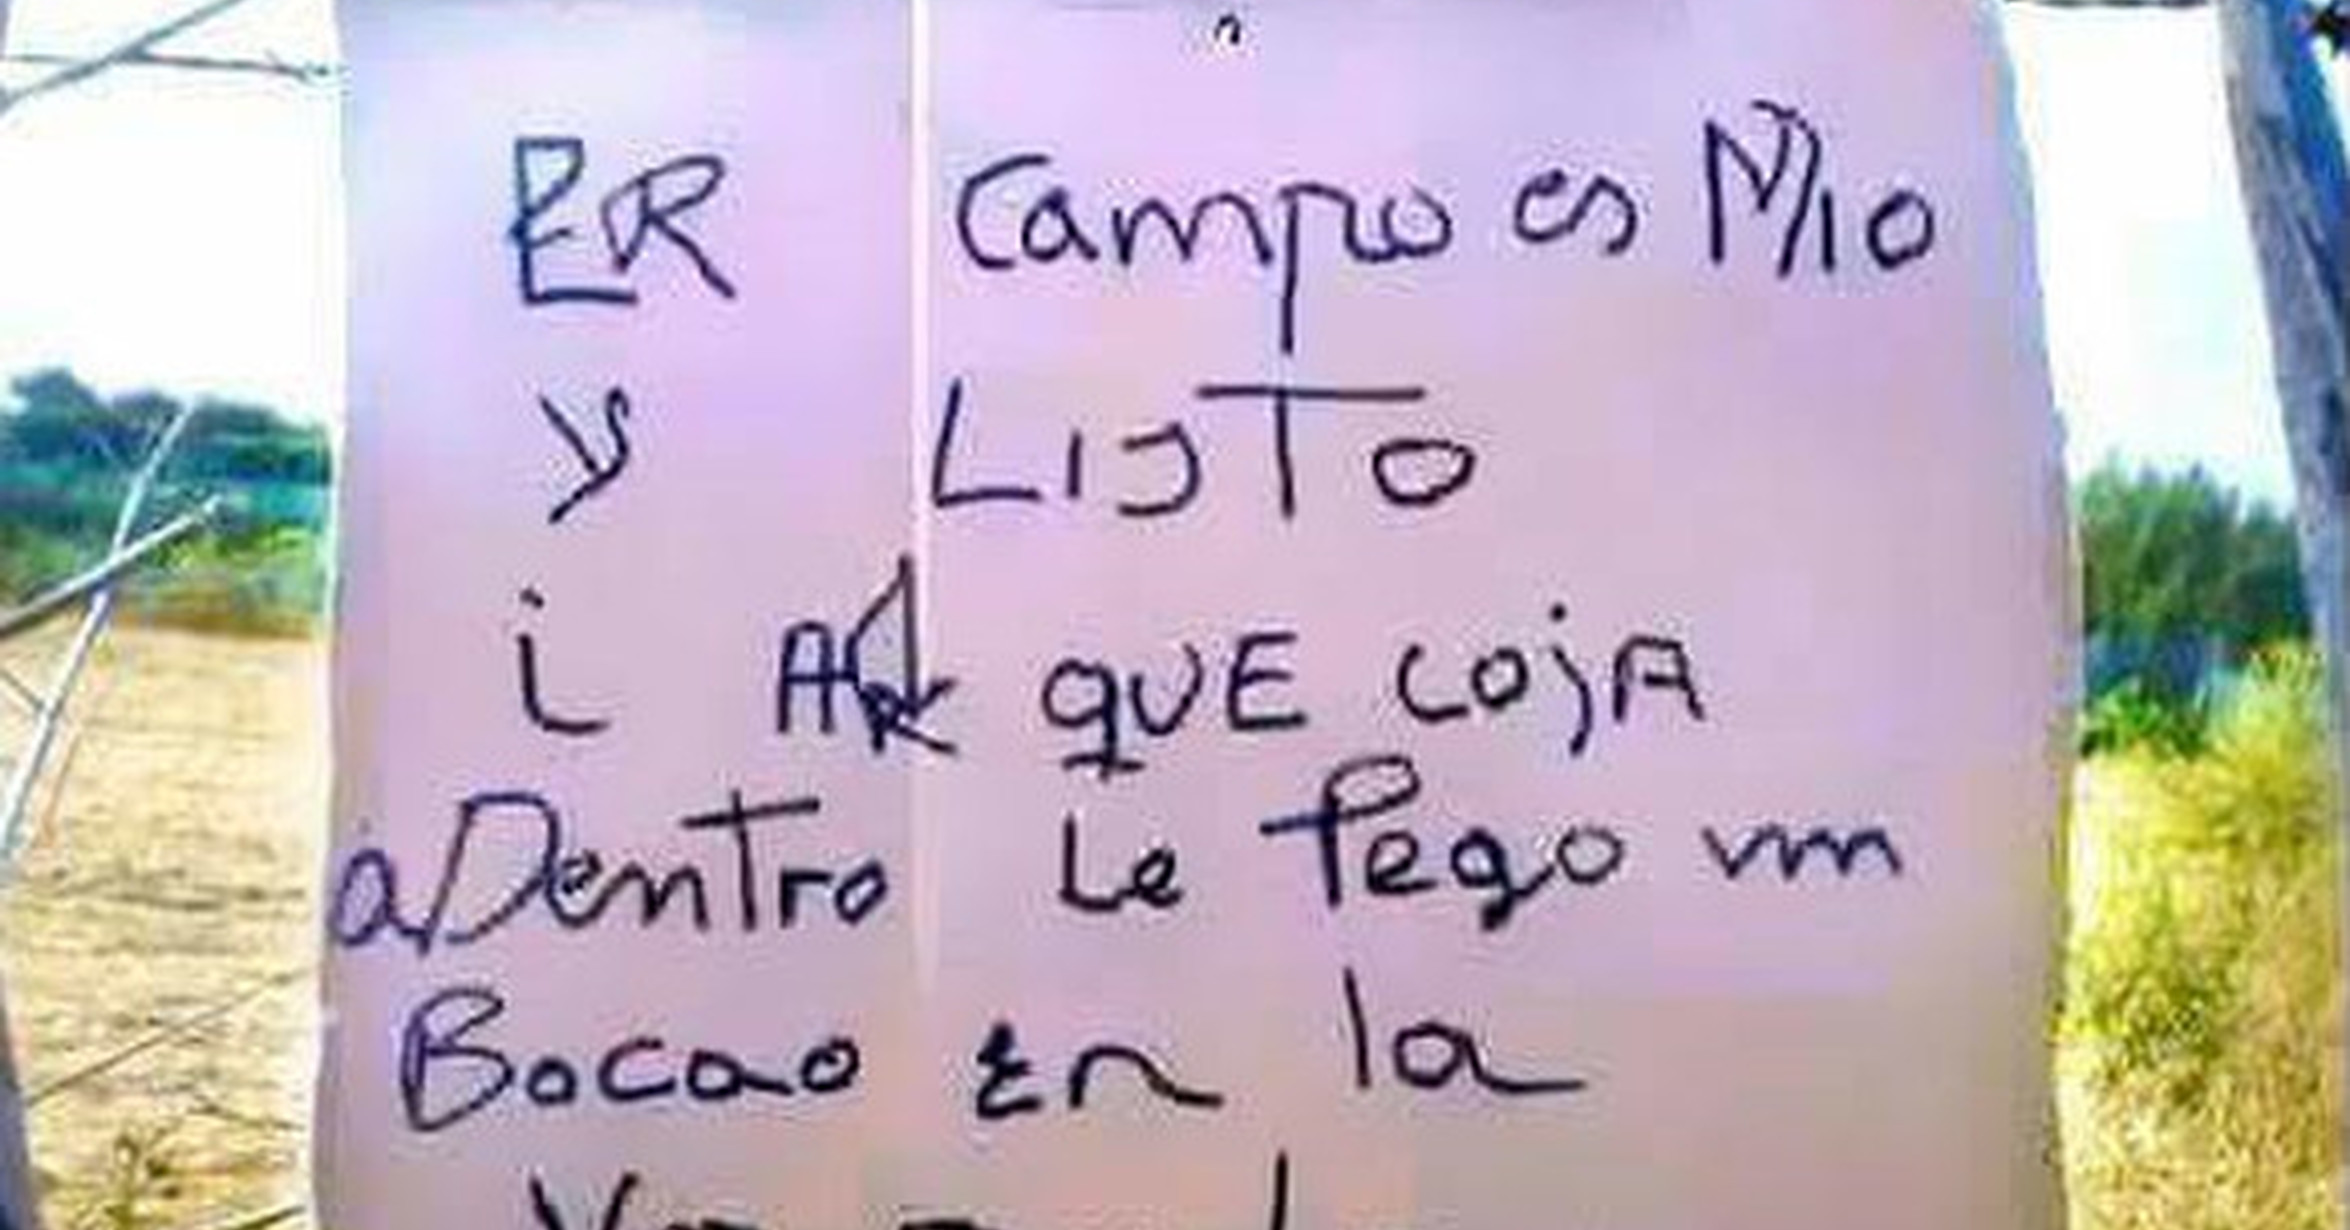 ER Campo es Mio
y LISTO
i AR QUE COjA
aDentro Le Pego un
Bocao En la